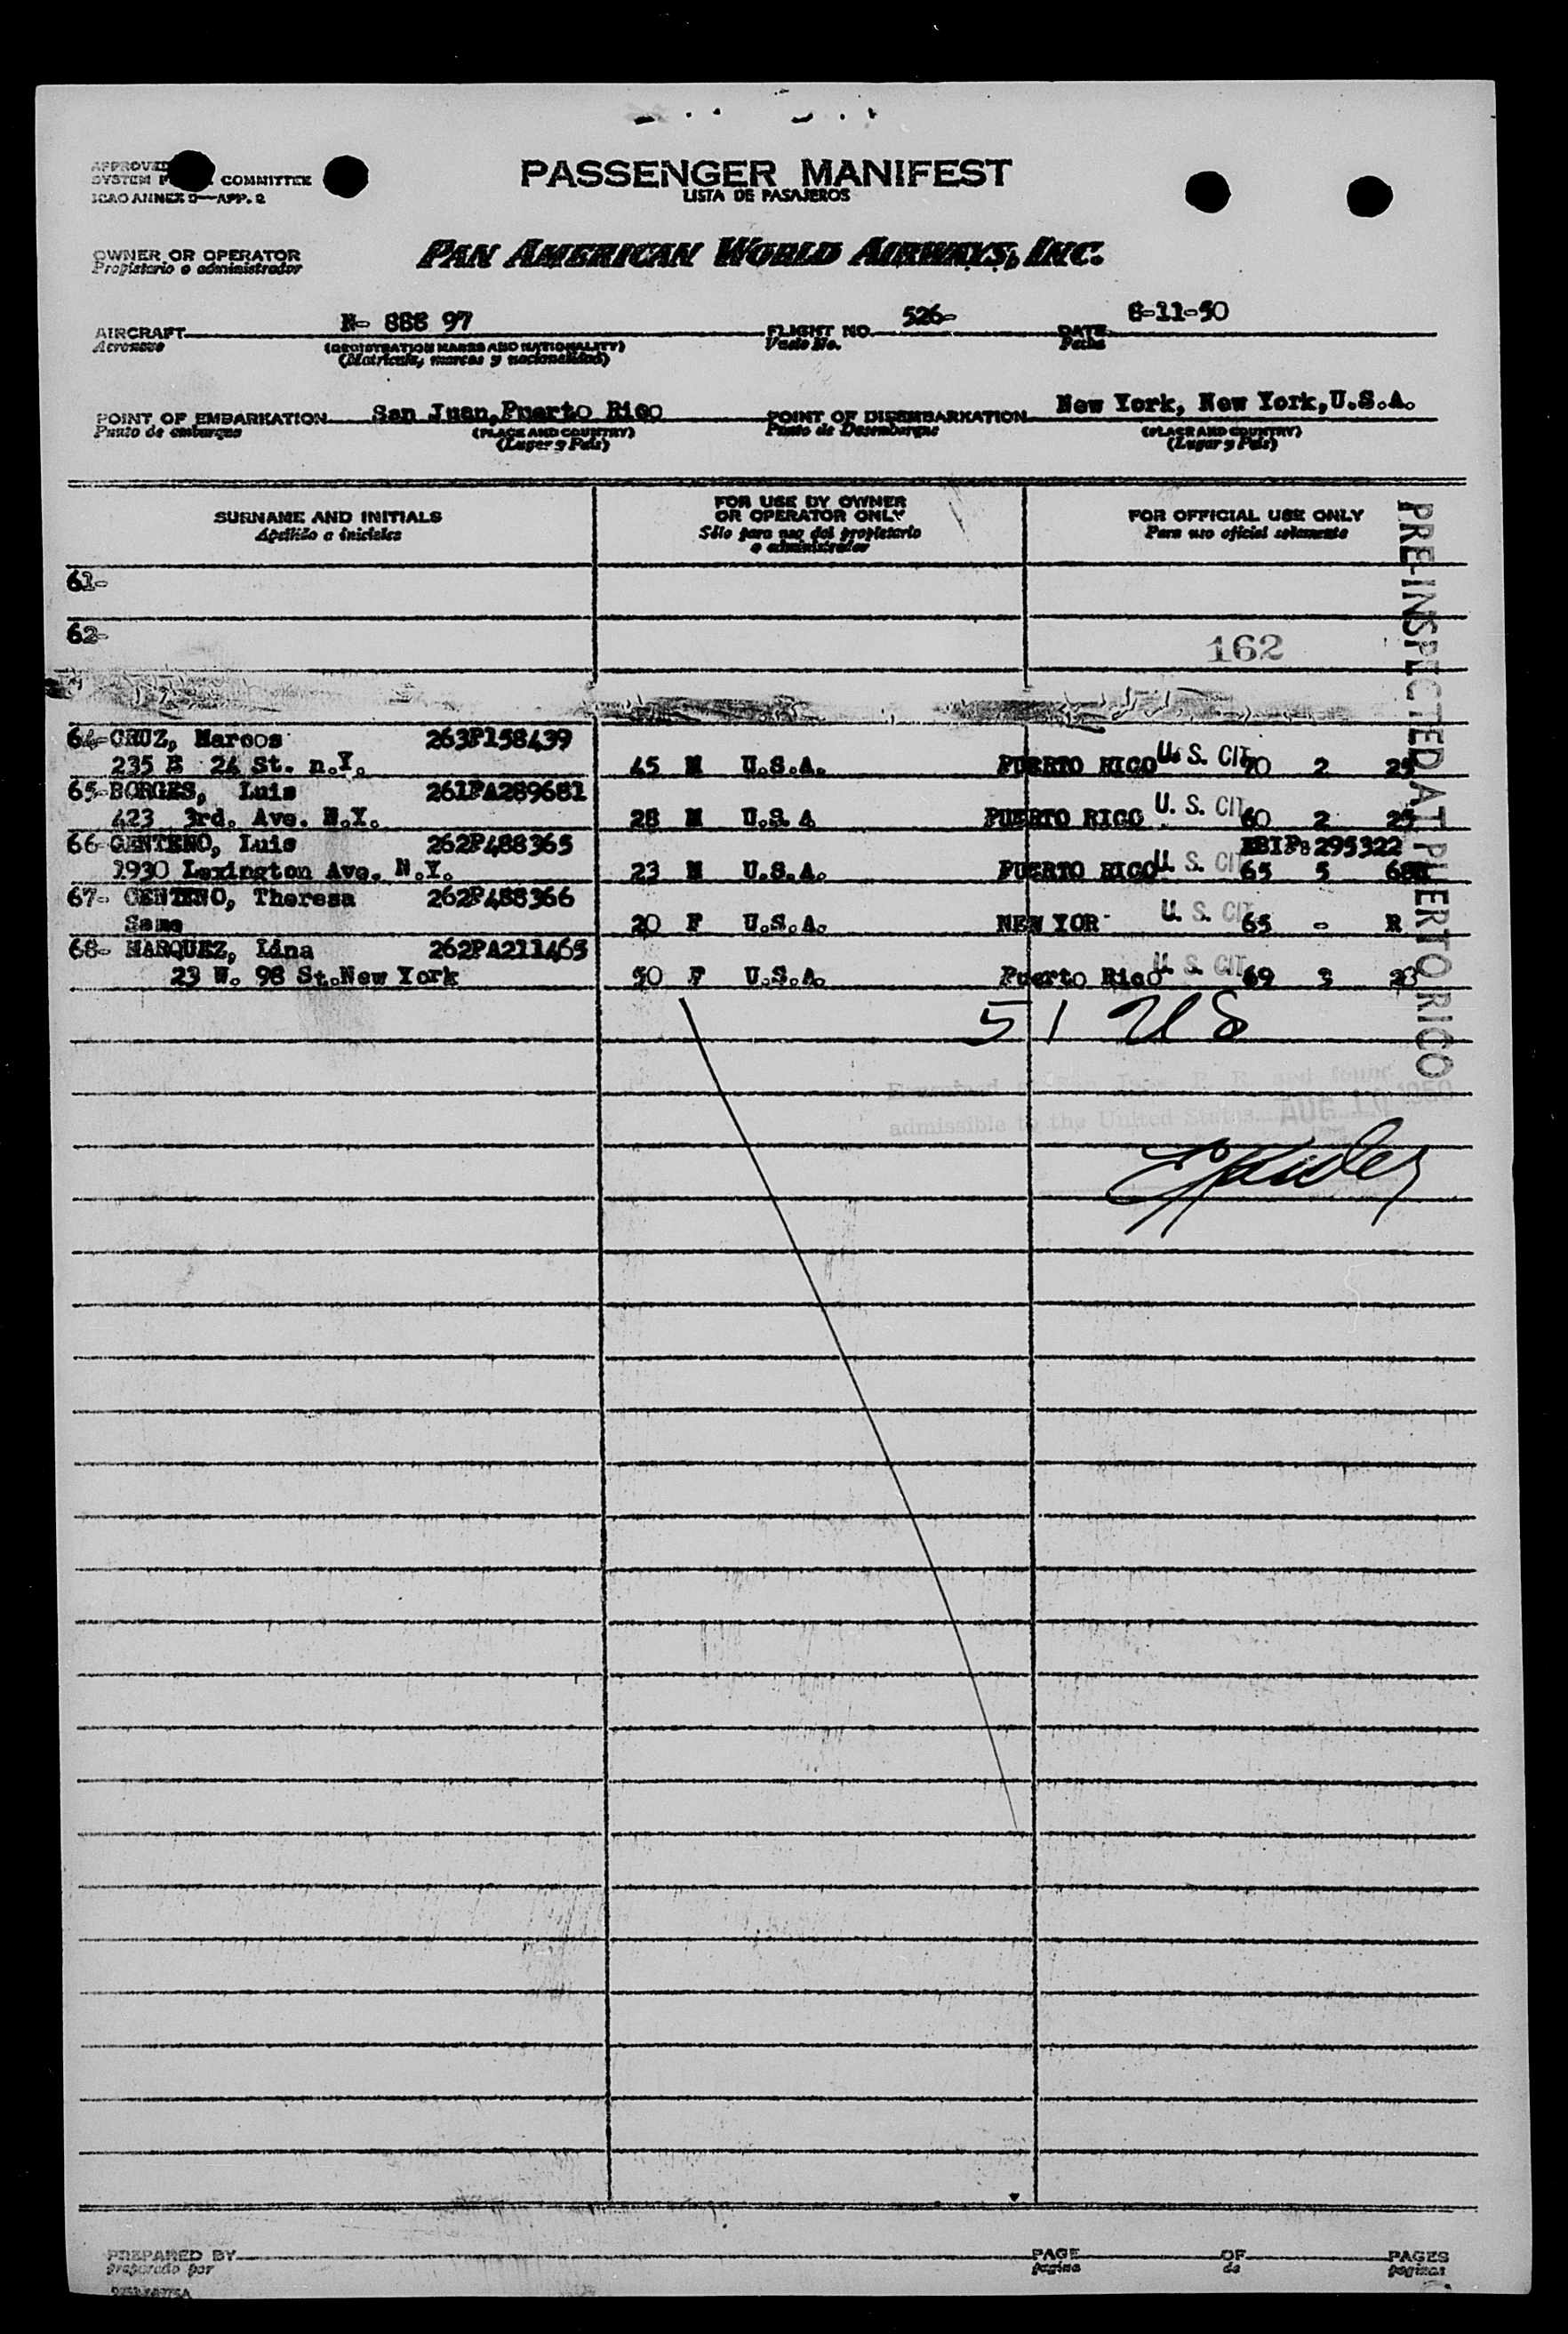 PASSENGER MANIFEST
LISTA DE PASAJEROS
APPROVED
SYSTEM COMMITTEE
ICAO ANNEX 9—APP. 2
OWNER OR OPERATOR
Propietario o administrador
PAN AMERICAN WORLD AIRWAYS, INC.
AIRCRAFT N- 888 97 FLIGHT NO. 526- DATE 8-11-50
Aeronave (REGISTRATION MARKS AND NATIONALITY) Vuelo No. Fecha
(Matricula, marcas y nacionalidad)
POINT OF EMBARKATION San Juan,Puerto Rico POINT OF DISEMBARKATION New York, New York,U.S.A.
Punto de embarque (PLACE AND COUNTRY) Punto de Desembarque (PLACE AND COUNTRY)
(Lugar y País) (Lugar y País)
SURNAME AND INITIALS FOR USE BY OWNER OR OPERATOR ONLY FOR OFFICIAL USE ONLY
Apellido e iniciales Sólo para uso del propietario o administrador Para uso oficial solamente
PRE-INSPECTED AT PUERTO RICO
61-
62-
162
64-CRUZ, Marcos 263P158439
235 E 24 St. n.Y. 45 M U.S.A. PUERTO RICO U. S. CIT. 70 2 25
65-BORGES, Luis 261PA289681
423 3rd. Ave. N.Y. 28 M U.S.A PUERTO RICO U. S. CIT. 60 2 25
66-CENTENO, Luis 262P488365 295322
1930 Lexington Ave. N.Y. 23 M U.S.A. PUERTO RICO U. S. CIT. 65 5
67- CENTENO, Theresa 262P488366
Same 20 F U.S.A. NEW YOR U. S. CIT. 65 - R
68- MARQUEZ, Lina 262PA211465
23 W. 98 St.New York 50 F U.S.A. Puerto Rico U. S. CIT. 69 3 23
51 US
Examined at San Juan P. R. and found
admissible to the United States. AUG 10 1950
PREPARED BY PAGE OF PAGES
preparado por pagina de paginas